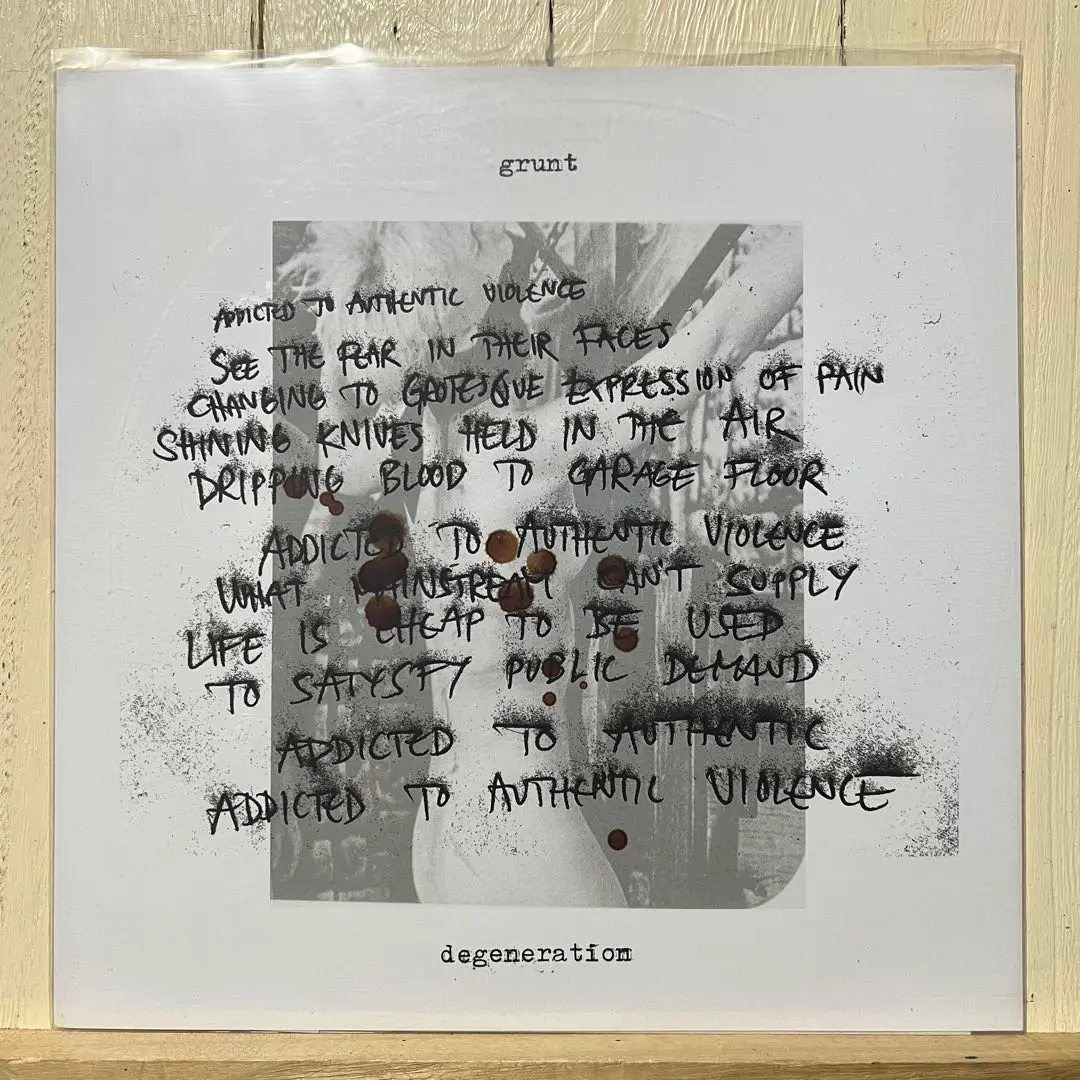 grunt
ADDICTED TO AUTHENTIC VIOLENCE
SEE THE FEAR IN THEIR FACES
CHANGING TO GROTESQUE EXPRESSION OF PAIN
SHINING KNIVES HELD IN THE AIR
DRIPPING BLOOD TO GARAGE FLOOR
ADDICTED TO AUTHENTIC VIOLENCE
WHAT MAINSTREAM CAN'T SUPPLY
LIFE IS CHEAP TO BE USED
TO SATYSFY PUBLIC DEMAND
ADDICTED TO AUTHENTIC
ADDICTED TO AUTHENTIC VIOLENCE
degeneration